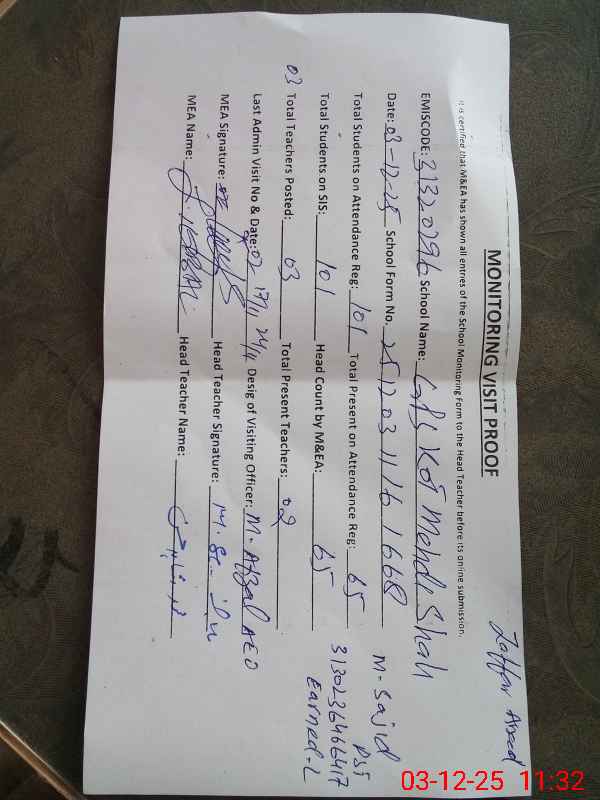 Zaffar Abad
MONITORING VISIT PROOF
It is certified that M&EA has shown all entries of the School Monitoring Form to the Head Teacher before its online submission.
EMISCODE: 31320796 School Name: GPS Kot Mehdi Shah
Date: 03-12-25 School Form No. 25120311161668
Total Students on Attendance Reg: 101 Total Present on Attendance Reg: 65
Total Students on SIS: 101 Head Count by M&EA: 65
03 Total Teachers Posted: 03 Total Present Teachers: 02
Last Admin Visit No & Date: 02 Desig of Visiting Officer: M. Afzal AEO
MEA Signature: Head Teacher Signature:
MEA Name: Head Teacher Name:
M-Sajid
PST
Earned-L
03-12-25 11:32